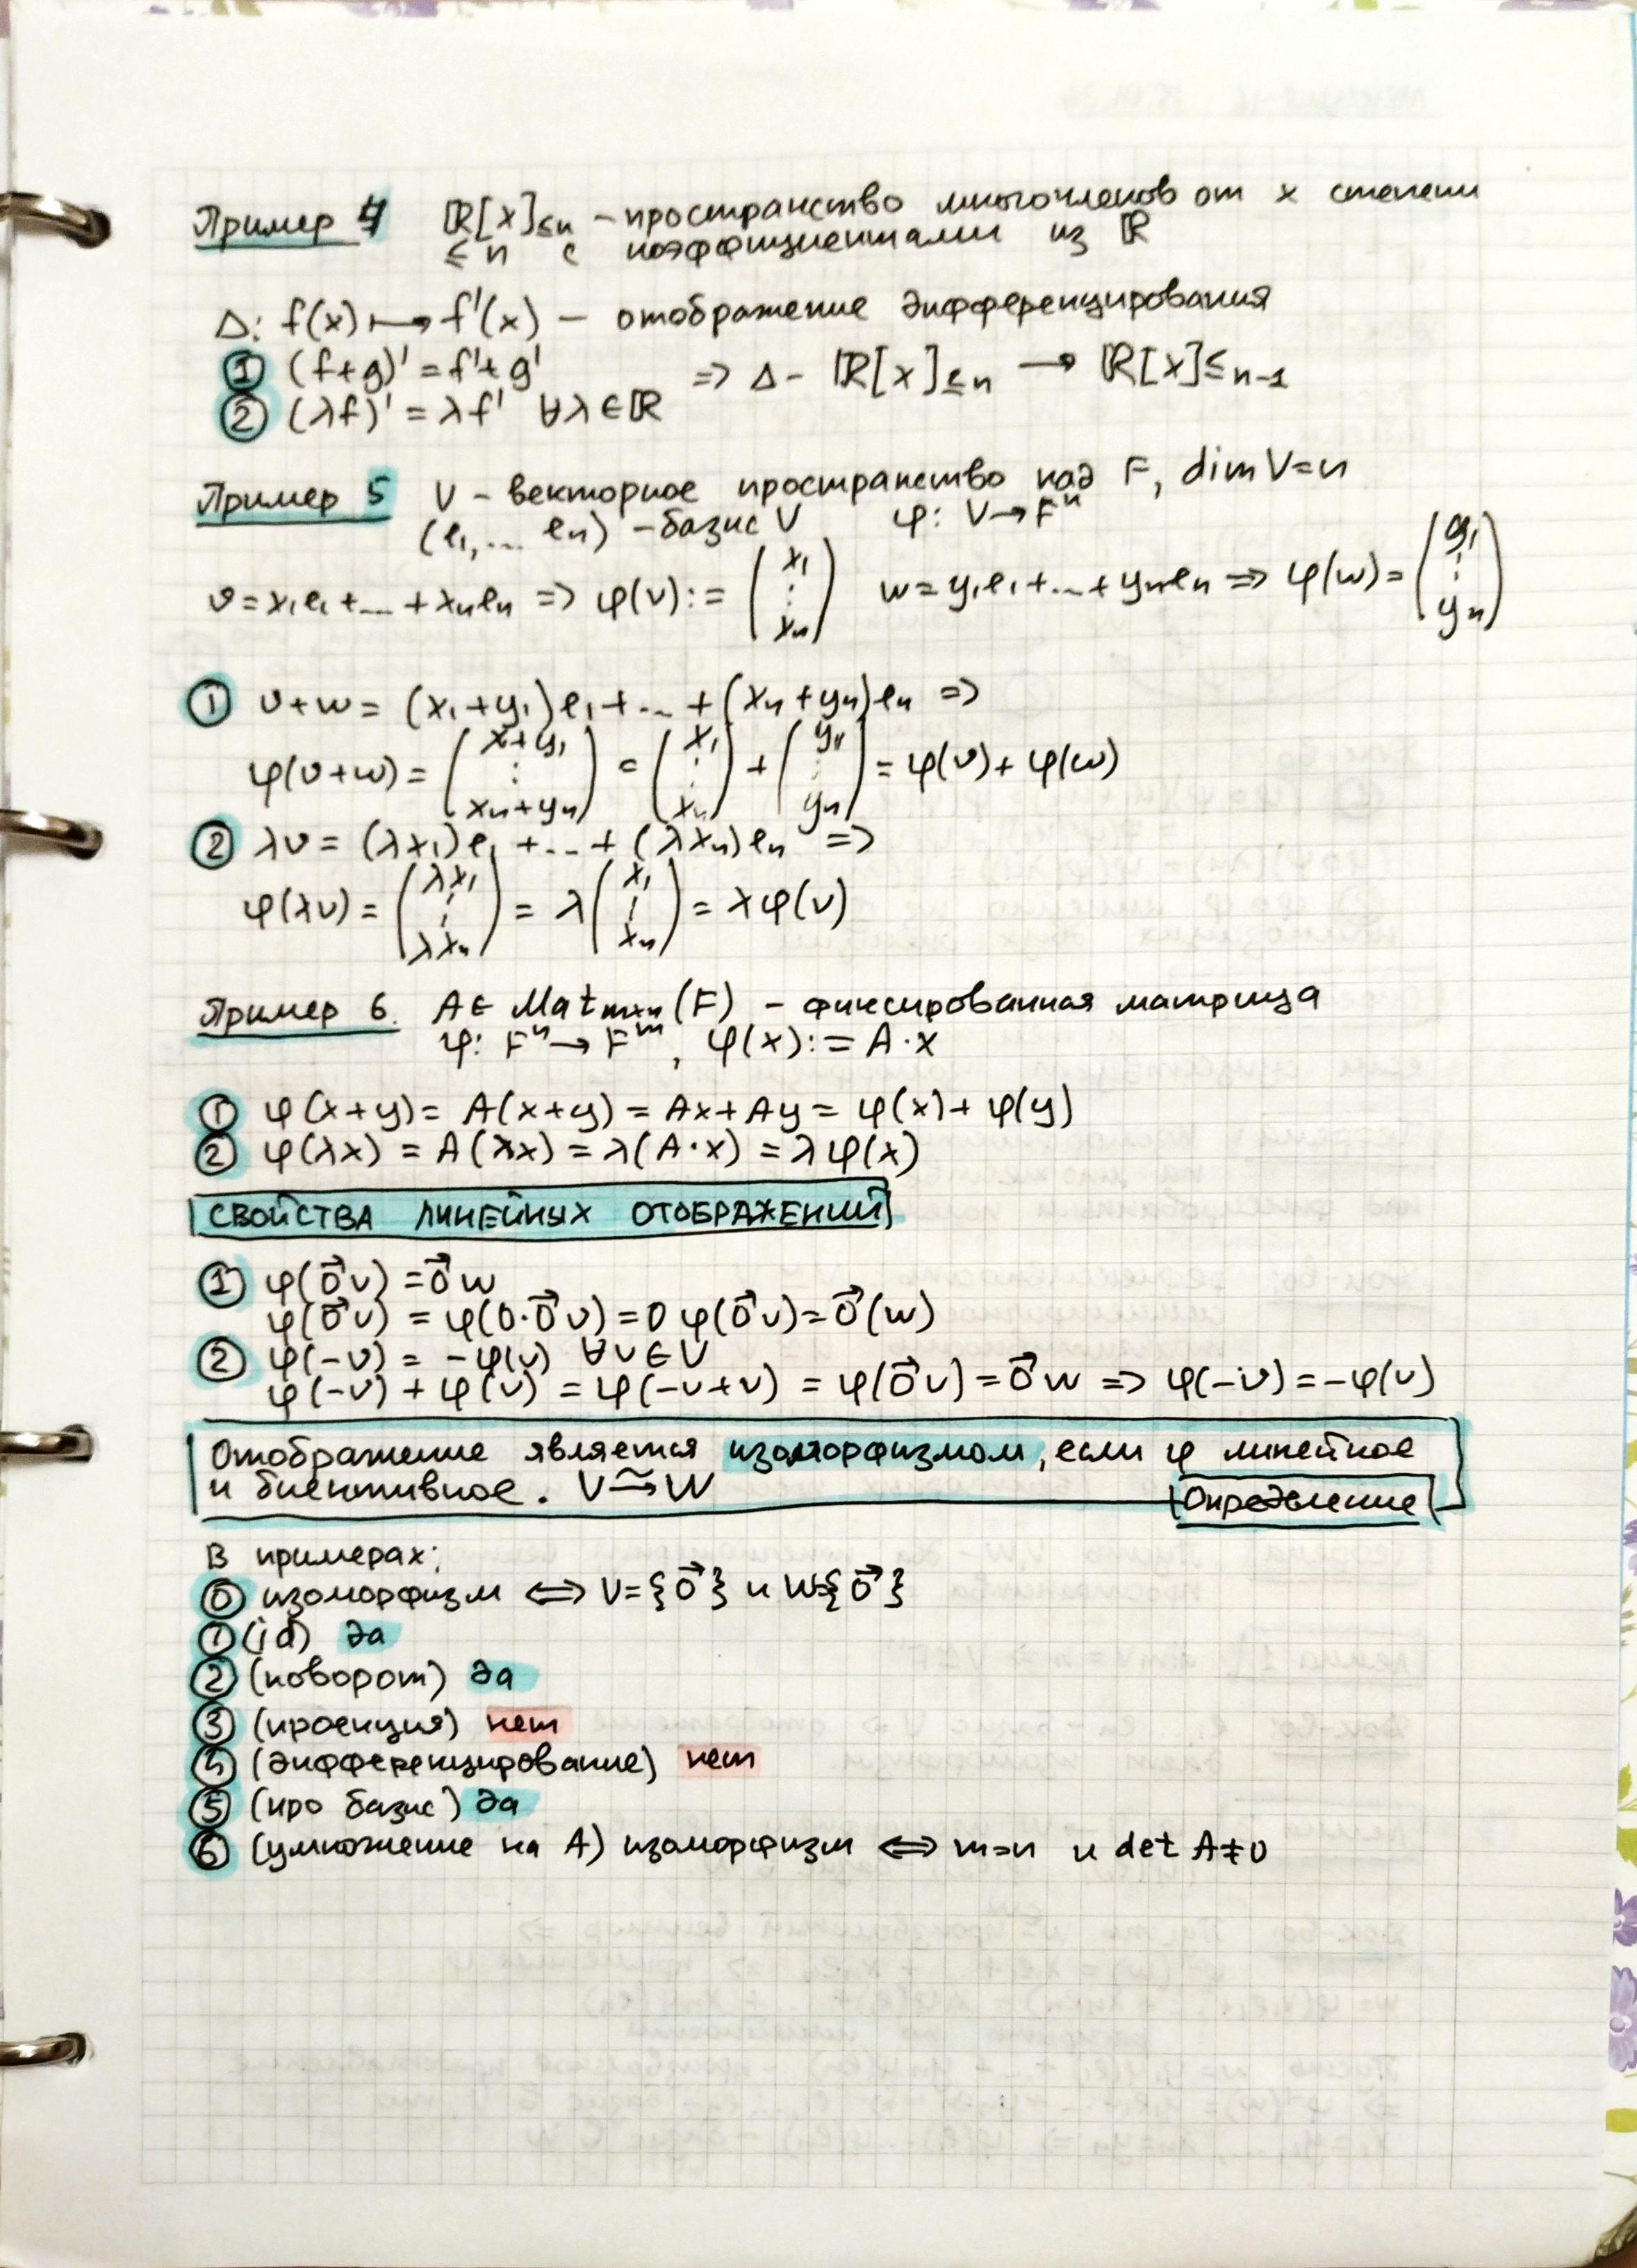 Пример 4 ℝ[x]≤n – пространство многочленов от x степени
≤ n с коэффициентами из ℝ
Δ: f(x) ↦ f'(x) – отображение дифференцирования
① (f+g)' = f'+g'
② (λf)' = λf' ∀λ∈ℝ
⇒ Δ – ℝ[x]≤n → ℝ[x]≤n-1
Пример 5 V – векторное пространство над F, dim V=n
(e₁,... eₙ) – базис V φ: V→Fⁿ
v=x₁e₁+...+xₙeₙ ⇒ φ(v):= (x₁ ⋮ xₙ) w=y₁e₁+...+yₙeₙ ⇒ φ(w)= (y₁ ⋮ yₙ)
① v+w= (x₁+y₁)e₁+...+(xₙ+yₙ)eₙ ⇒
φ(v+w)= (x+y₁ ⋮ xₙ+yₙ) = (x₁ ⋮ xₙ) + (y₁ ⋮ yₙ) = φ(v)+φ(w)
② λv= (λx₁)e₁+...+(λxₙ)eₙ ⇒
φ(λv)= (λx₁ ⋮ λxₙ) = λ(x₁ ⋮ xₙ) = λφ(v)
Пример 6. A∈ Matₘₓₙ(F) – фиксированная матрица
φ: Fⁿ→Fᵐ, φ(x):= A·x
① φ(x+y)= A(x+y)= Ax+Ay= φ(x)+φ(y)
② φ(λx) = A(λx)=λ(A·x)=λφ(x)
СВОЙСТВА ЛИНЕЙНЫХ ОТОБРАЖЕНИЙ
① φ(0⃗v) =0⃗w
φ(0⃗v) = φ(0·0⃗v)=0 φ(0⃗v)=0⃗(w)
② φ(-v) = -φ(v) ∀v∈V
φ(-v)+φ(v) = φ(-v+v) = φ(0⃗v)=0⃗w ⇒ φ(-v)=-φ(v)
Отображение является изоморфизмом, если φ линейное
и биективное. V⥲W
Определение
В примерах:
⓪ изоморфизм ⇔ V={0⃗} и W={0⃗}
① (id) да
② (поворот) да
③ (проекция) нет
④ (дифференцирование) нет
⑤ (про базис) да
⑥ (умножение на A) изоморфизм ⇔ m=n и det A≠0